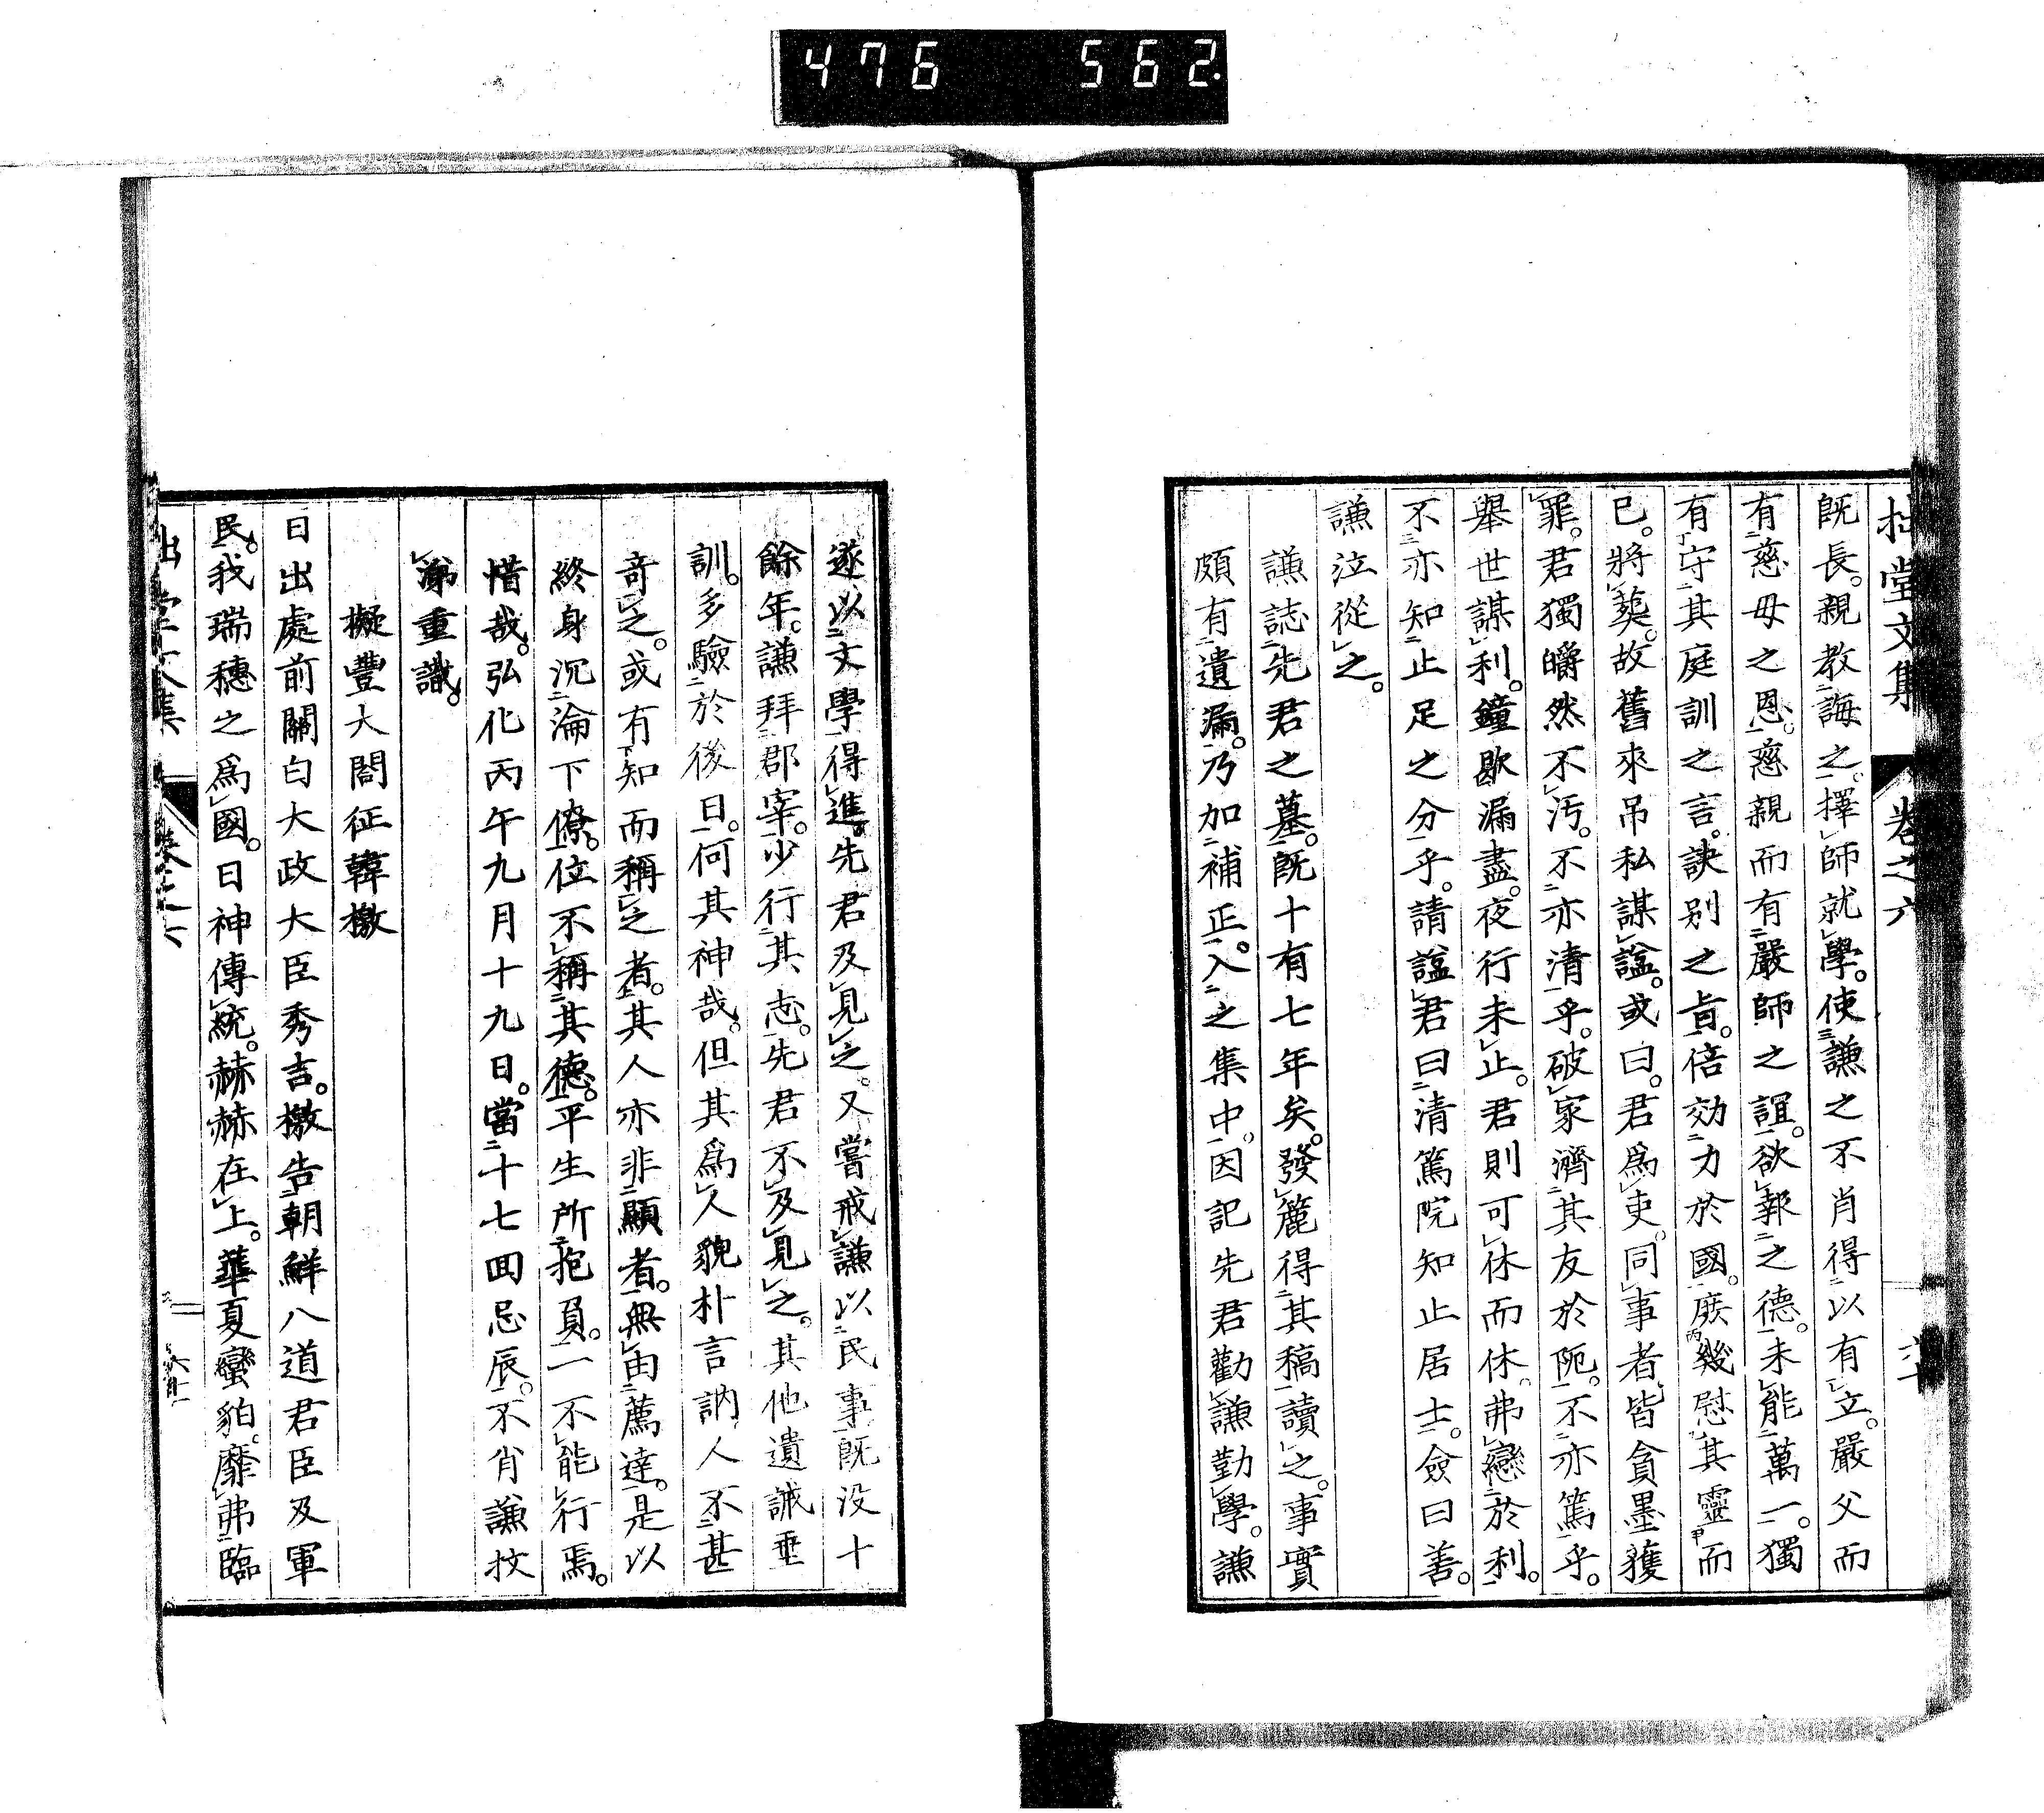 476 562
拙堂文集 卷之六
既長。親教誨之。擇師就學。使謙之不肖得以有立。嚴父而
有慈母之恩。慈親而有嚴師之誼。欲報之德。未能萬一。獨
有守其庭訓之言。訣別之旨。倍効力於國。庶幾慰其靈而
已。將葬。故舊來吊私謀諡。或曰。君爲吏。同事者皆貪墨獲
罪。君獨皭然不汚。不亦清乎。破家濟其友於阨。不亦篤乎。
舉世謀利。鐘歇漏盡。夜行未止。君則可休而休。弗戀於利。
不亦知止足之分乎。請諡君曰清篤院知止居士。僉曰善。
謙泣從之。
謙誌先君之墓。既十有七年矣。發簏得其稿讀之。事實
頗有遺漏。乃加補正。入之集中。因記先君勸謙勤學。謙
遂以文學得進。先君及見之。又嘗戒謙以民事。既没十
餘年。謙拜郡宰。少行其志。先君不及見之。其他遺誡垂
訓。多驗於後日。何其神哉。但其爲人貌朴言訥。人不甚
奇之。或有知而稱之者。其人亦非顯者。無由薦達。是以
終身沉淪下僚。位不稱其德。平生所抱負。一不能行焉。
惜哉。弘化丙午九月十九日。當十七回忌辰。不肖謙抆
涕重識。
擬豐大閤征韓檄
日出處前關白大政大臣秀吉。檄告朝鮮八道君臣及軍
民。我瑞穗之爲國。日神傳統。赫赫在上。華夏蠻貊。靡弗臨